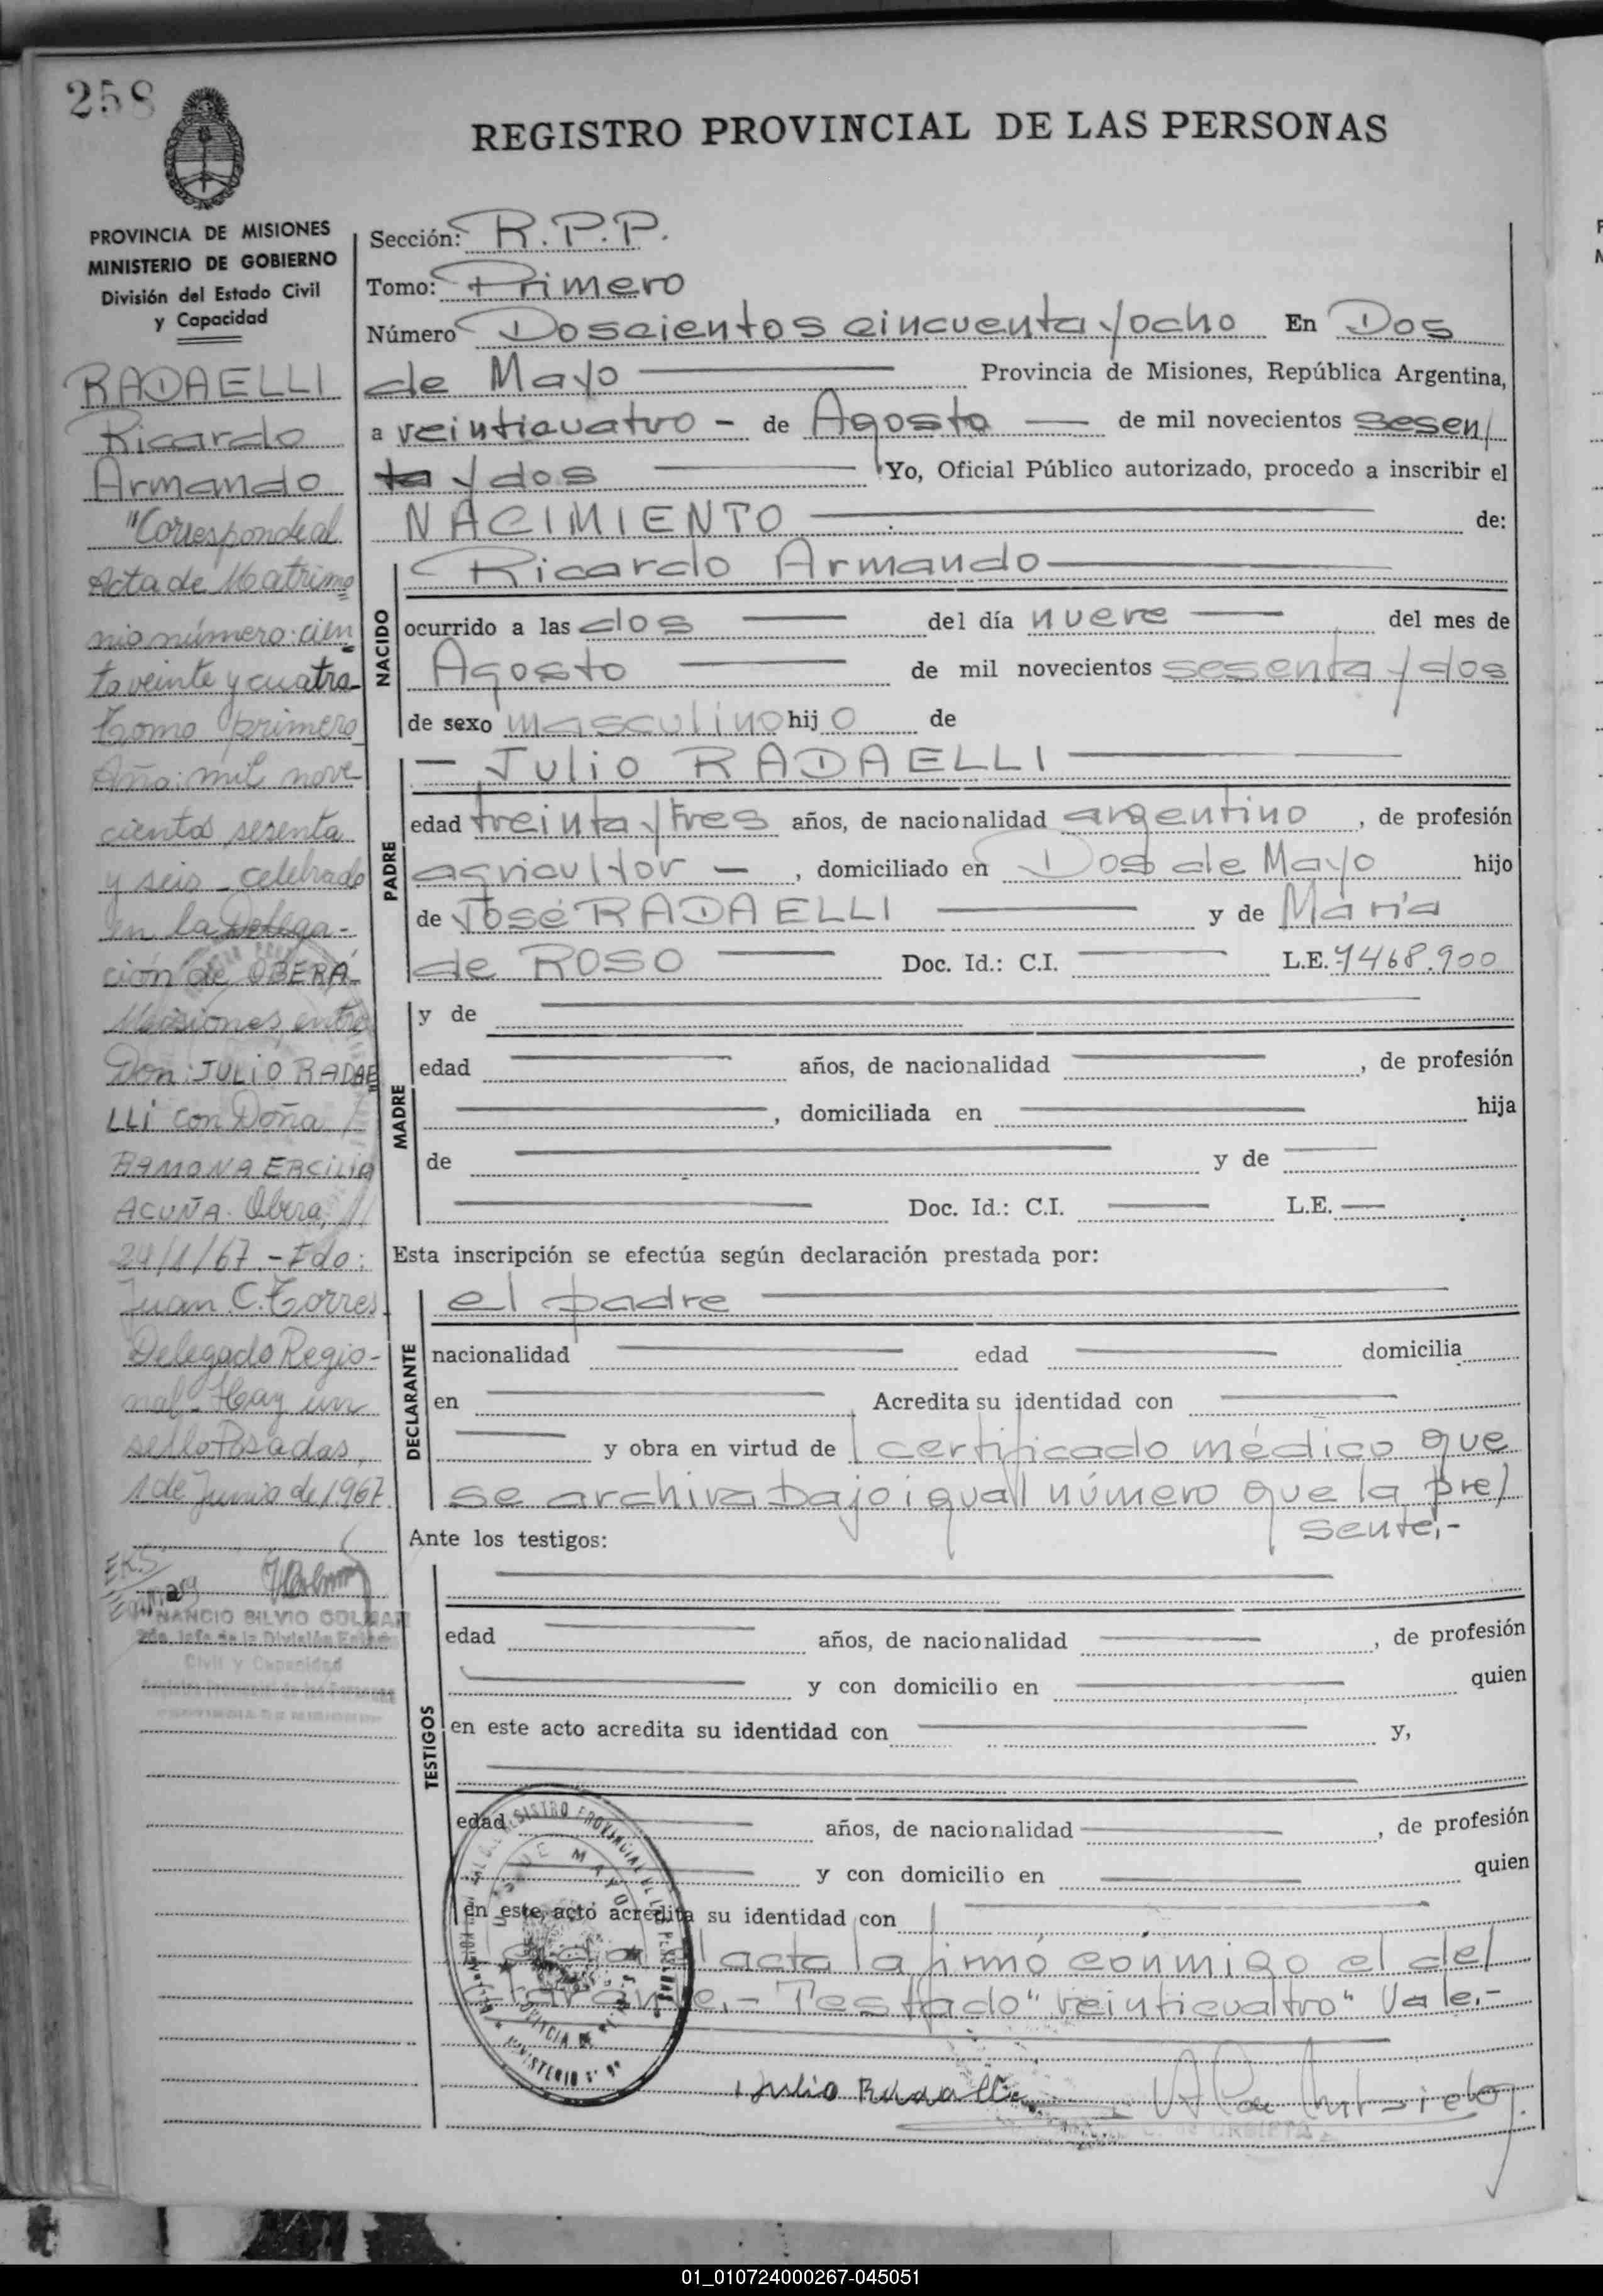 258
REGISTRO PROVINCIAL DE LAS PERSONAS
PROVINCIA DE MISIONES
MINISTERIO DE GOBIERNO
División del Estado Civil
y Capacidad
RADAELLI
Ricardo
Armando
"Corresponde al
Acta de Matrimo
nio número: cien
to veinte y cuatro
Tomo primero
Año: mil nove
cientos sesenta
y seis - celebrado
en la Delega-
ción de OBERÁ-
Misiones, entre
Don: JULIO RADAE
LLI con Doña
RAMONA ERCILIA
ACUÑA. Obera,
24/1/67.- Fdo:
Juan C. Torres
Delegado Regio-
nal- Hay un
sello Posadas,
1 de Junio de 1967
NANCIO SILVIO COLMAN
2do. Jefe de la División Estado
Civil y Capacidad
Sección: R.P.P.
Tomo: Primero
Número Doscientos cincuenta y ocho En Dos
de Mayo Provincia de Misiones, República Argentina,
a veinticuatro - de Agosto de mil novecientos sesen/
ta y dos Yo, Oficial Público autorizado, procedo a inscribir el
NACIMIENTO de:
NACIDO
Ricardo Armando
ocurrido a las dos del día nueve del mes de
Agosto de mil novecientos sesenta y dos
de sexo masculino hijo de
PADRE
- Julio RADAELLI
edad treinta y tres años, de nacionalidad argentino, de profesión
agricultor -, domiciliado en Dos de Mayo hijo
de José RADAELLI y de María
de ROSO Doc. Id.: C.I. L.E. 7468.900
MADRE
y de
edad años, de nacionalidad , de profesión
, domiciliada en hija
de y de
Doc. Id.: C.I. L.E.
Esta inscripción se efectúa según declaración prestada por:
DECLARANTE
el padre
nacionalidad edad domicilia
en Acredita su identidad con
y obra en virtud de certificado médico que
se archiva bajo igual número que la pre/
sente,-
Ante los testigos:
TESTIGOS
edad años, de nacionalidad , de profesión
y con domicilio en quien
en este acto acredita su identidad con y,
edad años, de nacionalidad , de profesión
y con domicilio en quien
en este acto acredita su identidad con
acta la firmó conmigo el del
Testado "veinticuatro" Vale.-
Julio Radaelli
01_010724000267-045051